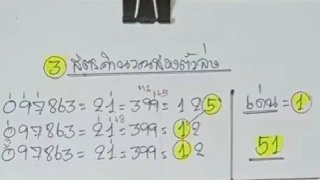 3 สูตรคำนวณสองตัวล่าง
097863 = 21 = 399 = 125
097863 = 21 = 399 = 12
097863 = 21 = 399 = 12
เด่น = 1
51